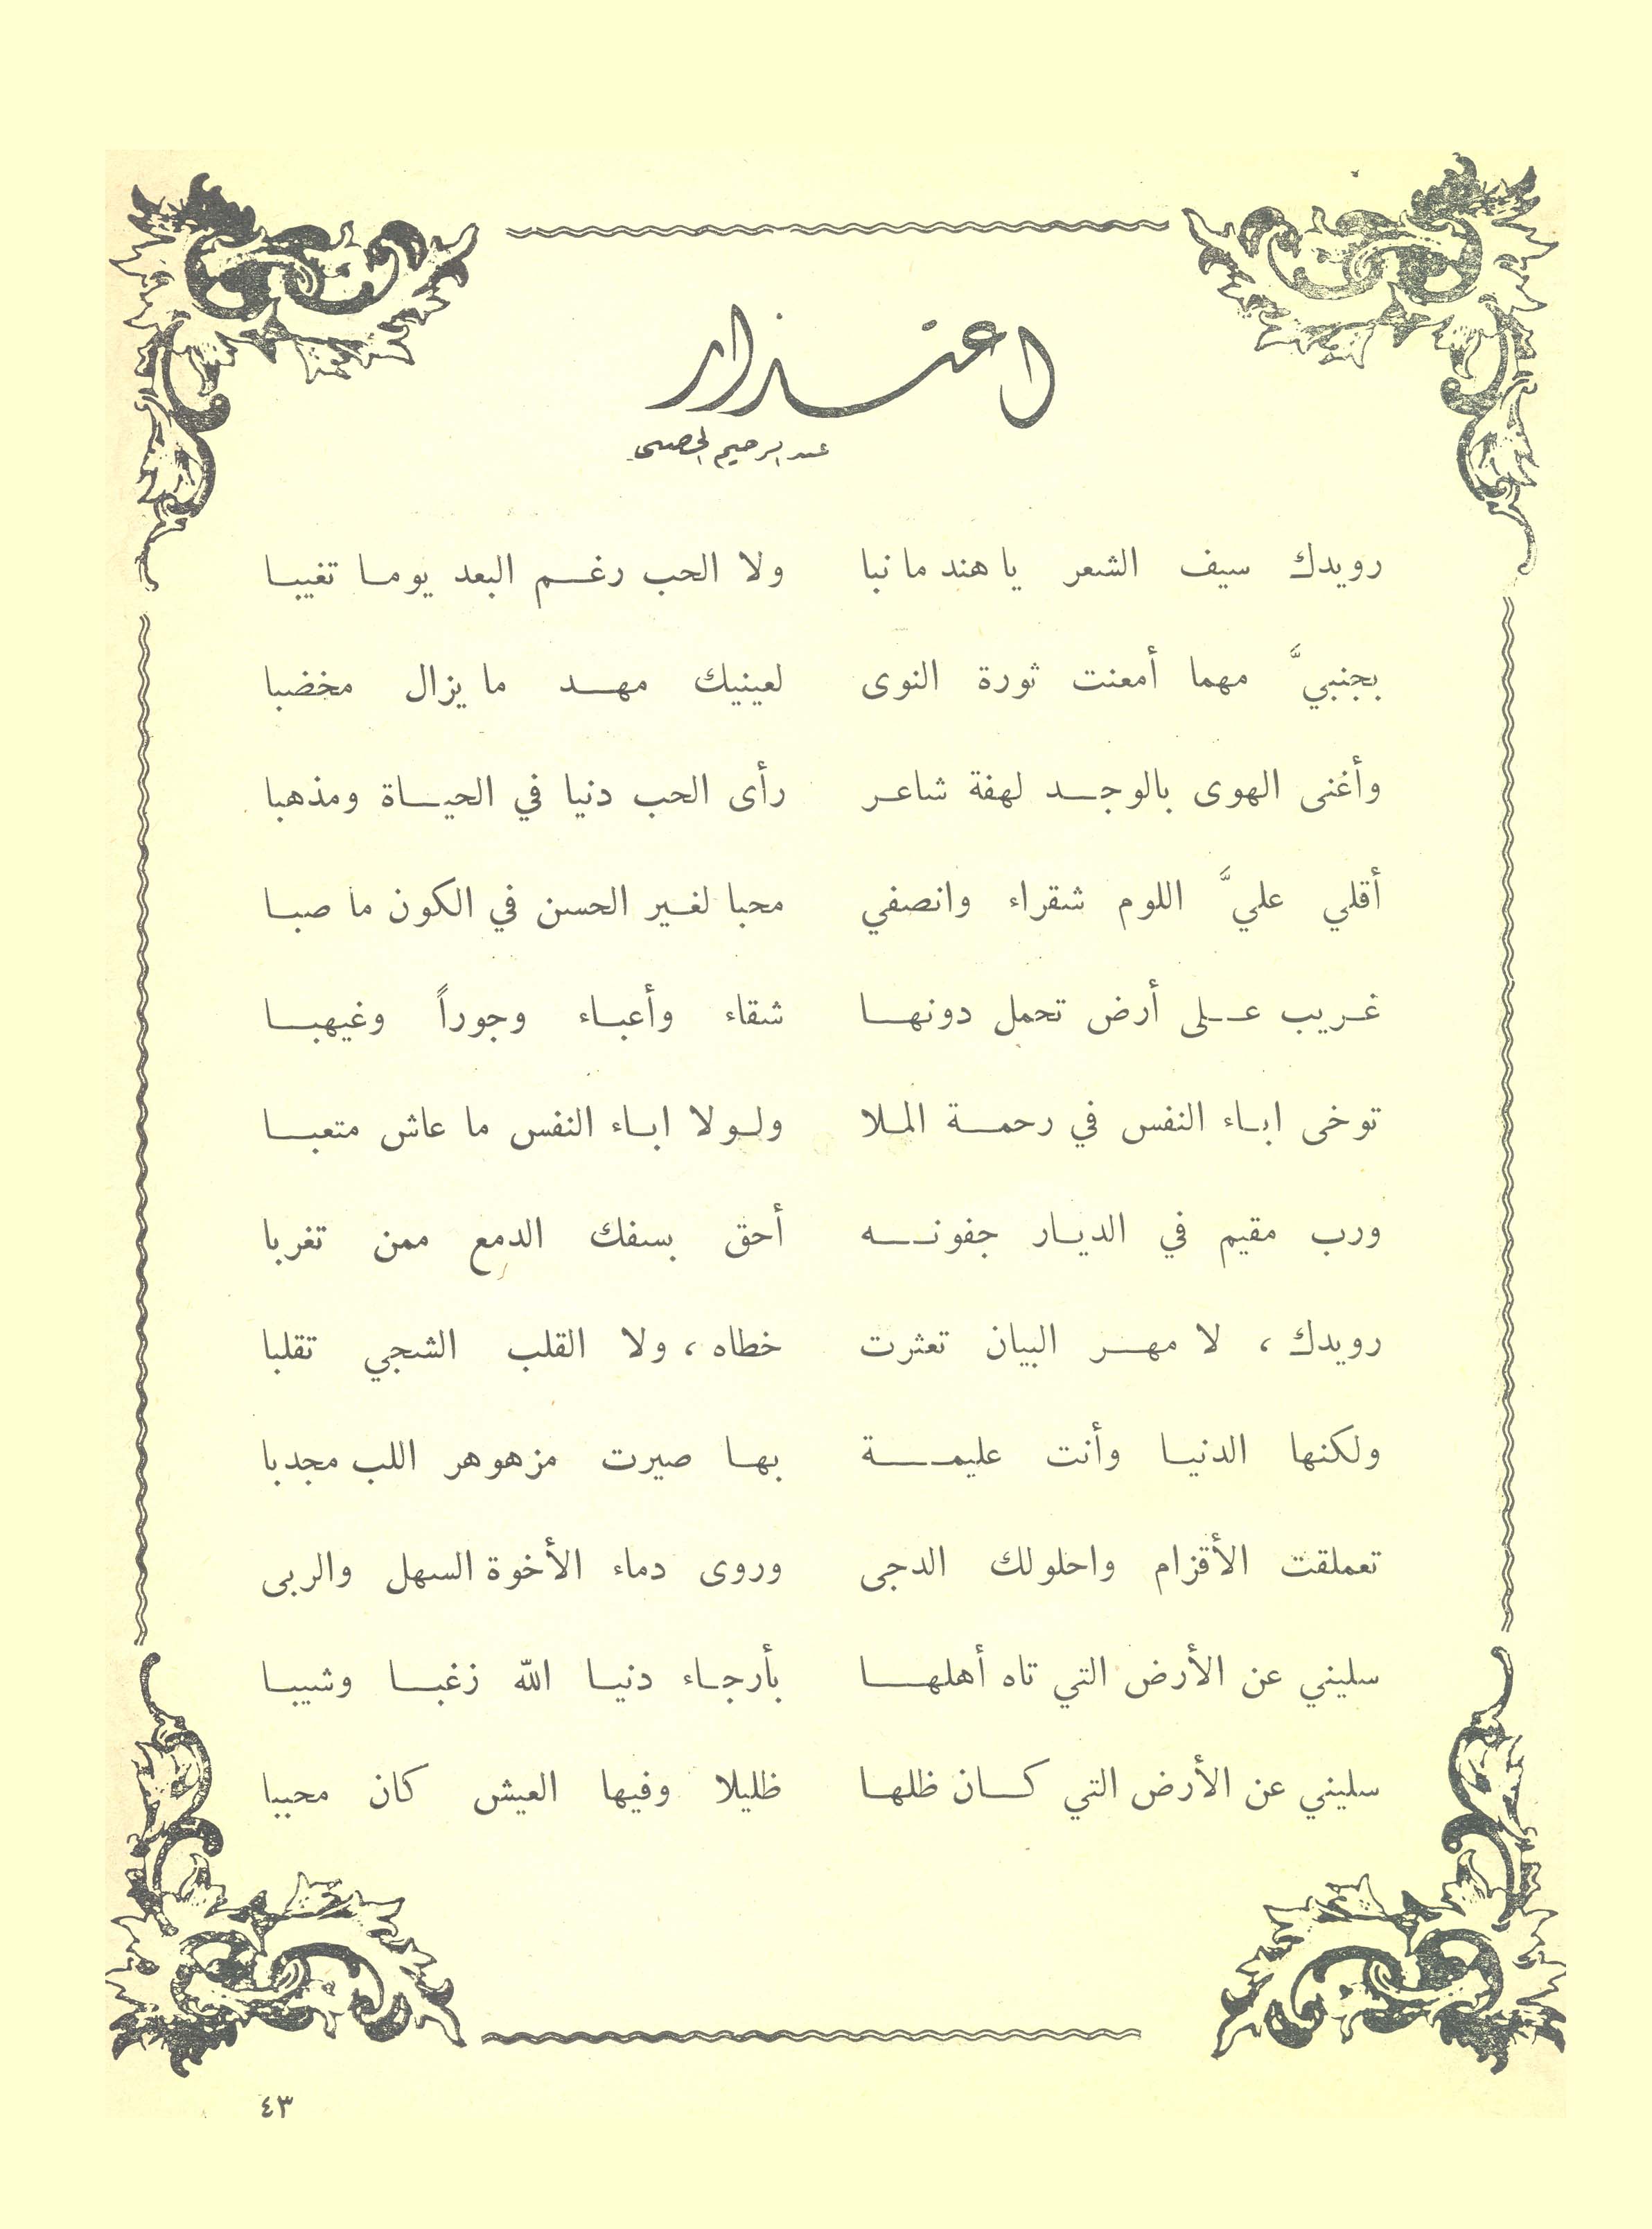 اعتذار
عبد الرحيم الحصني
رويدك سيف الشعر يا هند ما نبا ولا الحب رغم البعد يوما تغيبا
بجنبيَّ مهما أمعنت ثورة النوى لعينيك مهد ما يزال مخضبا
وأغنى الهوى بالوجد لهفة شاعر رأى الحب دنيا في الحياة ومذهبا
أقلي عليَّ اللوم شقراء وانصفي محبا لغير الحسن في الكون ما صبا
غريب على أرض تحمل دونها شقاء وأعباء وجوراً وغيهبا
توخى اباء النفس في رحمة الملا ولولا اباء النفس ما عاش متعبا
ورب مقيم في الديار جفونه أحق بسفك الدمع ممن تغربا
رويدك ، لا مهر البيان تعثرت خطاه ، ولا القلب الشجي تقلبا
ولكنها الدنيا وأنت عليمة بها صيرت مزهوهر اللب مجدبا
تعملقت الأقزام واحلولك الدجى وروى دماء الأخوة السهل والربى
سليني عن الأرض التي تاه أهلها بأرجاء دنيا الله زغبا وشيبا
سليني عن الأرض التي كان ظلها ظليلا وفيها العيش كان محببا
٤٣